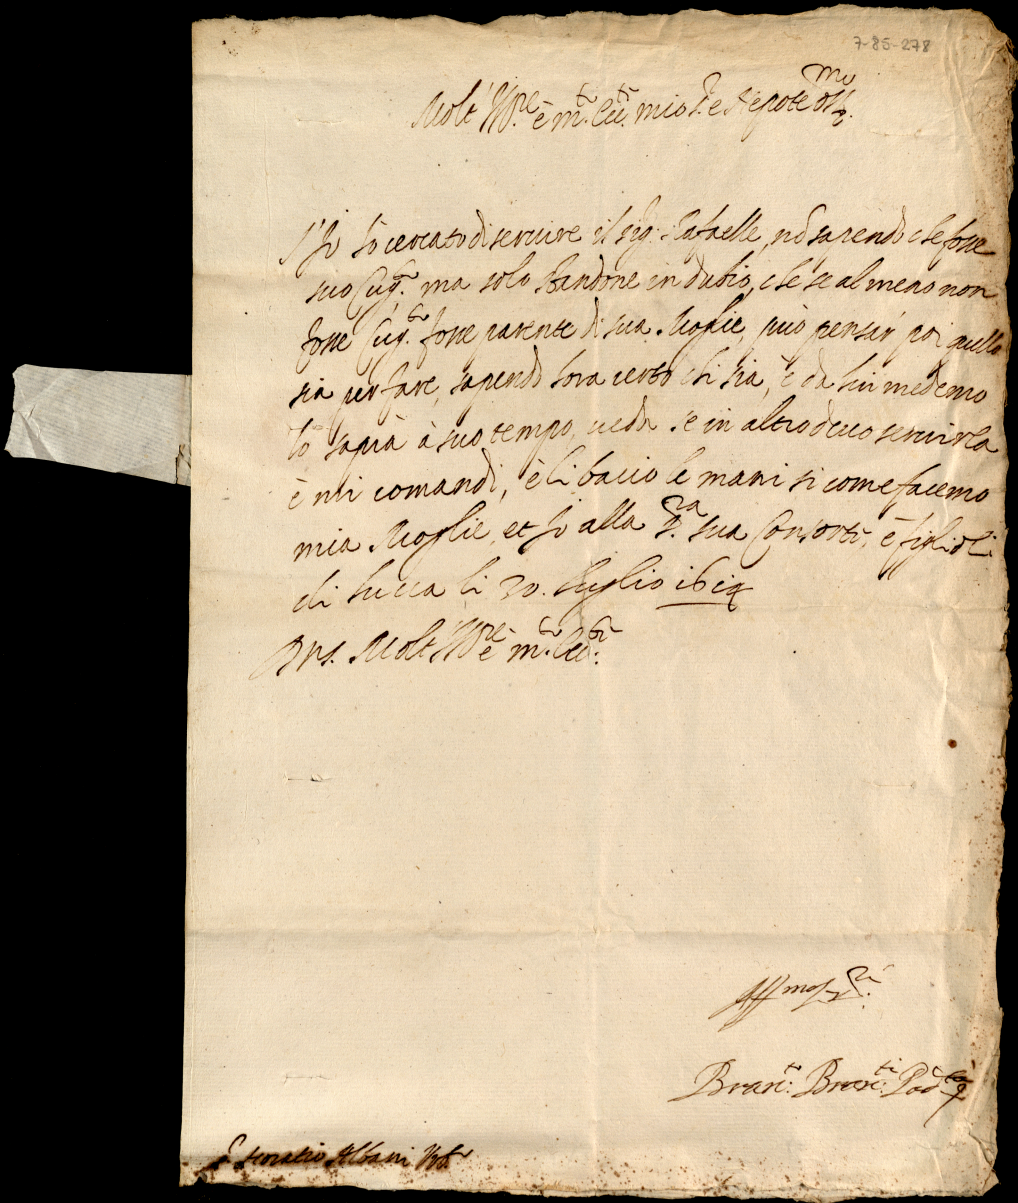 7-85-278
Molt' Ill.re è m.to Ecc.te mio S.r e Nepote oss.mo
Io hò cercato di servire il sig.r Rafaelle, nō sapendo che fosse
suo Cug.no ma solo standone in dubio, che se al meno non
fosse Cug.no fosse parente di sua Moglie, può pensar' poi quello
sia per fare, sapendo hora certo chi sia, è da lui medemo
lo saprà à suo tempo, veda se in altro devo servirla
è mi comandi, è li bacio le mani si come facemo
mia Moglie, et Io alla S.ra sua Consorte, è figlioli
di Lucca li 20. Luglio 1614
D.V.S. Molt' Ill.re è m.to Ecc.te
Aff.mo
Branc.to Branc.ti Pod.tà
S.r Horatio Albani